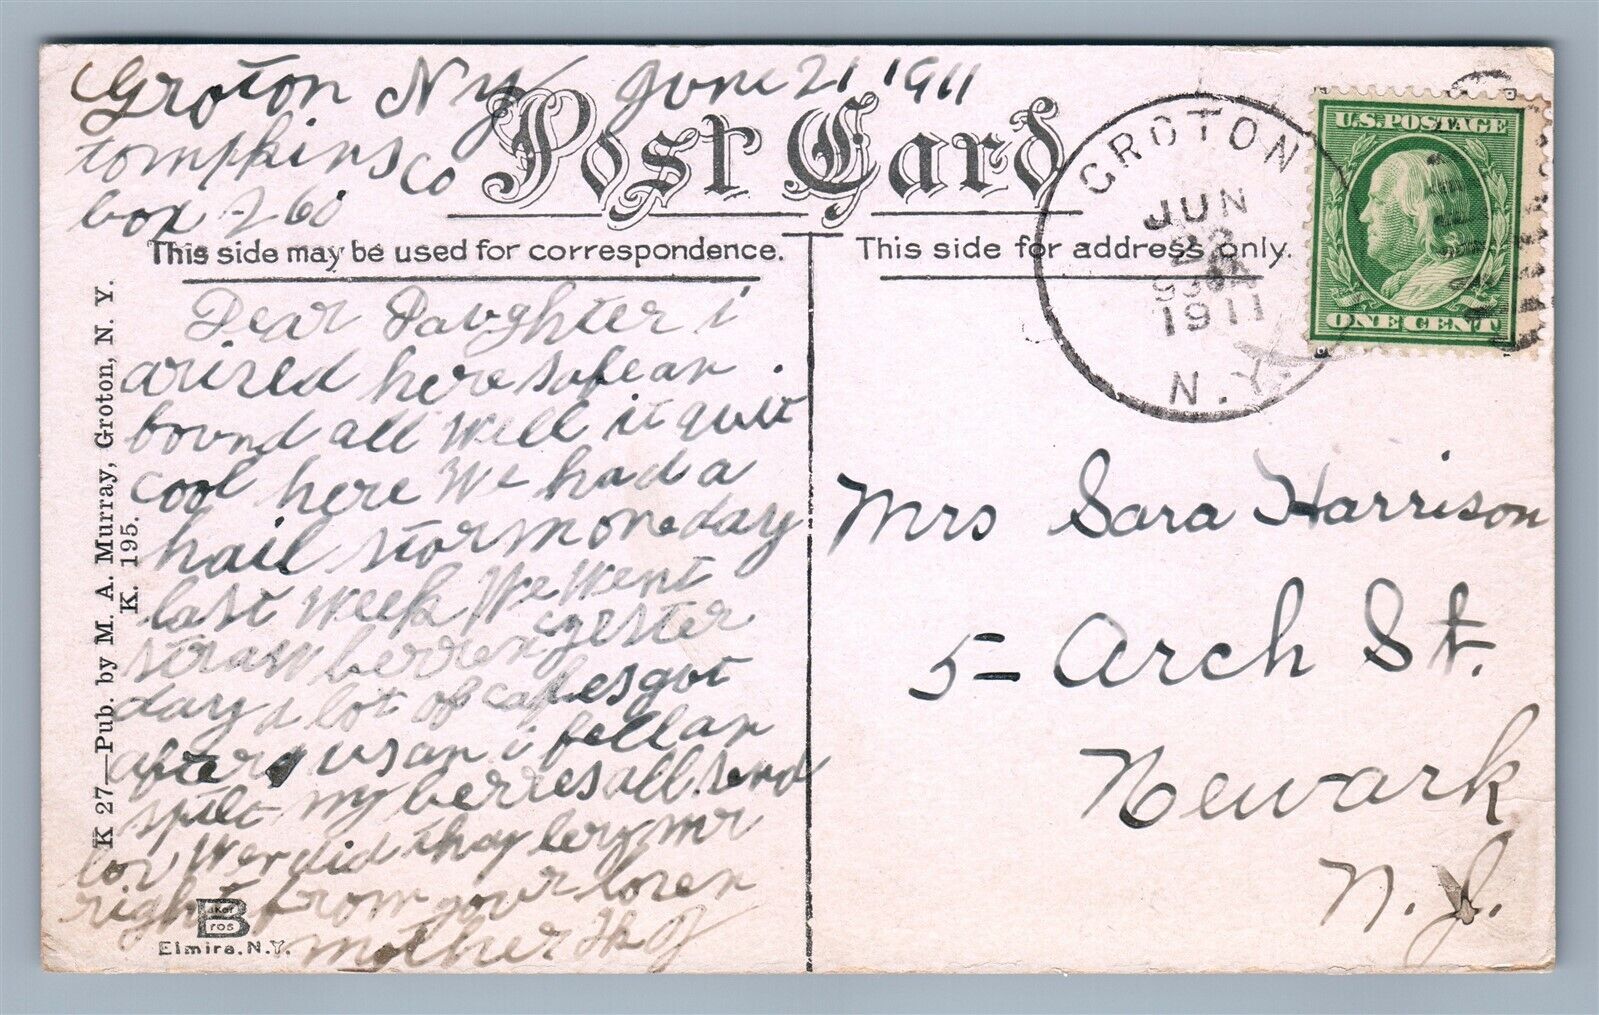 Groton N Y June 21 1911
tompkins Co
box 260
Post Card
This side may be used for correspondence.
This side for address only.
GROTON
JUN
22
1911
N.Y.
U.S. POSTAGE
ONE CENT
Dear Daughter i
arired here safe an
bound all well it quit
cool here We had a
hail storm one day
last Week We Went
straw berren yester
day a lot of calfes got
after us an i fell an
spilt my berres all send
right from your loven
mother
Mrs Sara Harrison
5 = Arch St.
Newark
N.J.
K 27—Pub. by M. A. Murray, Groton, N. Y.
K. 195.
B
Elmira, N.Y.